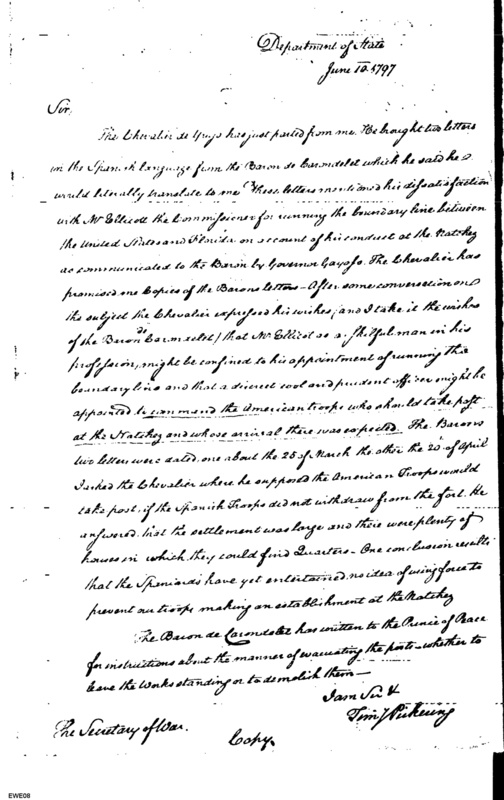 Department of State
June 10. 1797
Sir,
The Chevalier de Yrujo has just parted from me. He brought two letters
in the Spanish language from the Baron de Carondelet which he said he
would literally translate to me. These letters mentioned his dissatisfaction
with Mr Ellicott the Commissioner for running the boundary line between
the United States and Florida on account of his conduct at the Natchez
as communicated to the Baron by Governor Gayoso. The Chevalier has
promised me Copies of the Barons letters - After some conversation on
the subject the Chevalier expressed his wishes, and I take it the wishes
of the Baron de Carondelet / that Mr Ellicot as a skilful man in his
profession, might be confined to his appointment of running the
boundary line and that a discreet cool and prudent officer might be
appointed to command the American troops who should take post
at the Natchez and whose arrival there was expected. The Barons
two letters were dated, one about the 25 of March the other the 20th of April
I asked the Chevalier where he supposed the American Troops would
take post, if the Spanish Troops did not withdraw from the fort. He
answered that the settlement was large and there were plenty of
houses in which they could find Quarters - One conclusion results
that the Spaniards have yet entertained no idea of using force to
prevent our troops making an establishment at the Natchez
The Baron de Carondelet has written to the Prince of Peace
for instructions about the manner of evacuating the posts - whether to
leave the Works standing or to demolish them -
I am Sir &
Timy Pickering
The Secretary of War.
Copy.
EWE08